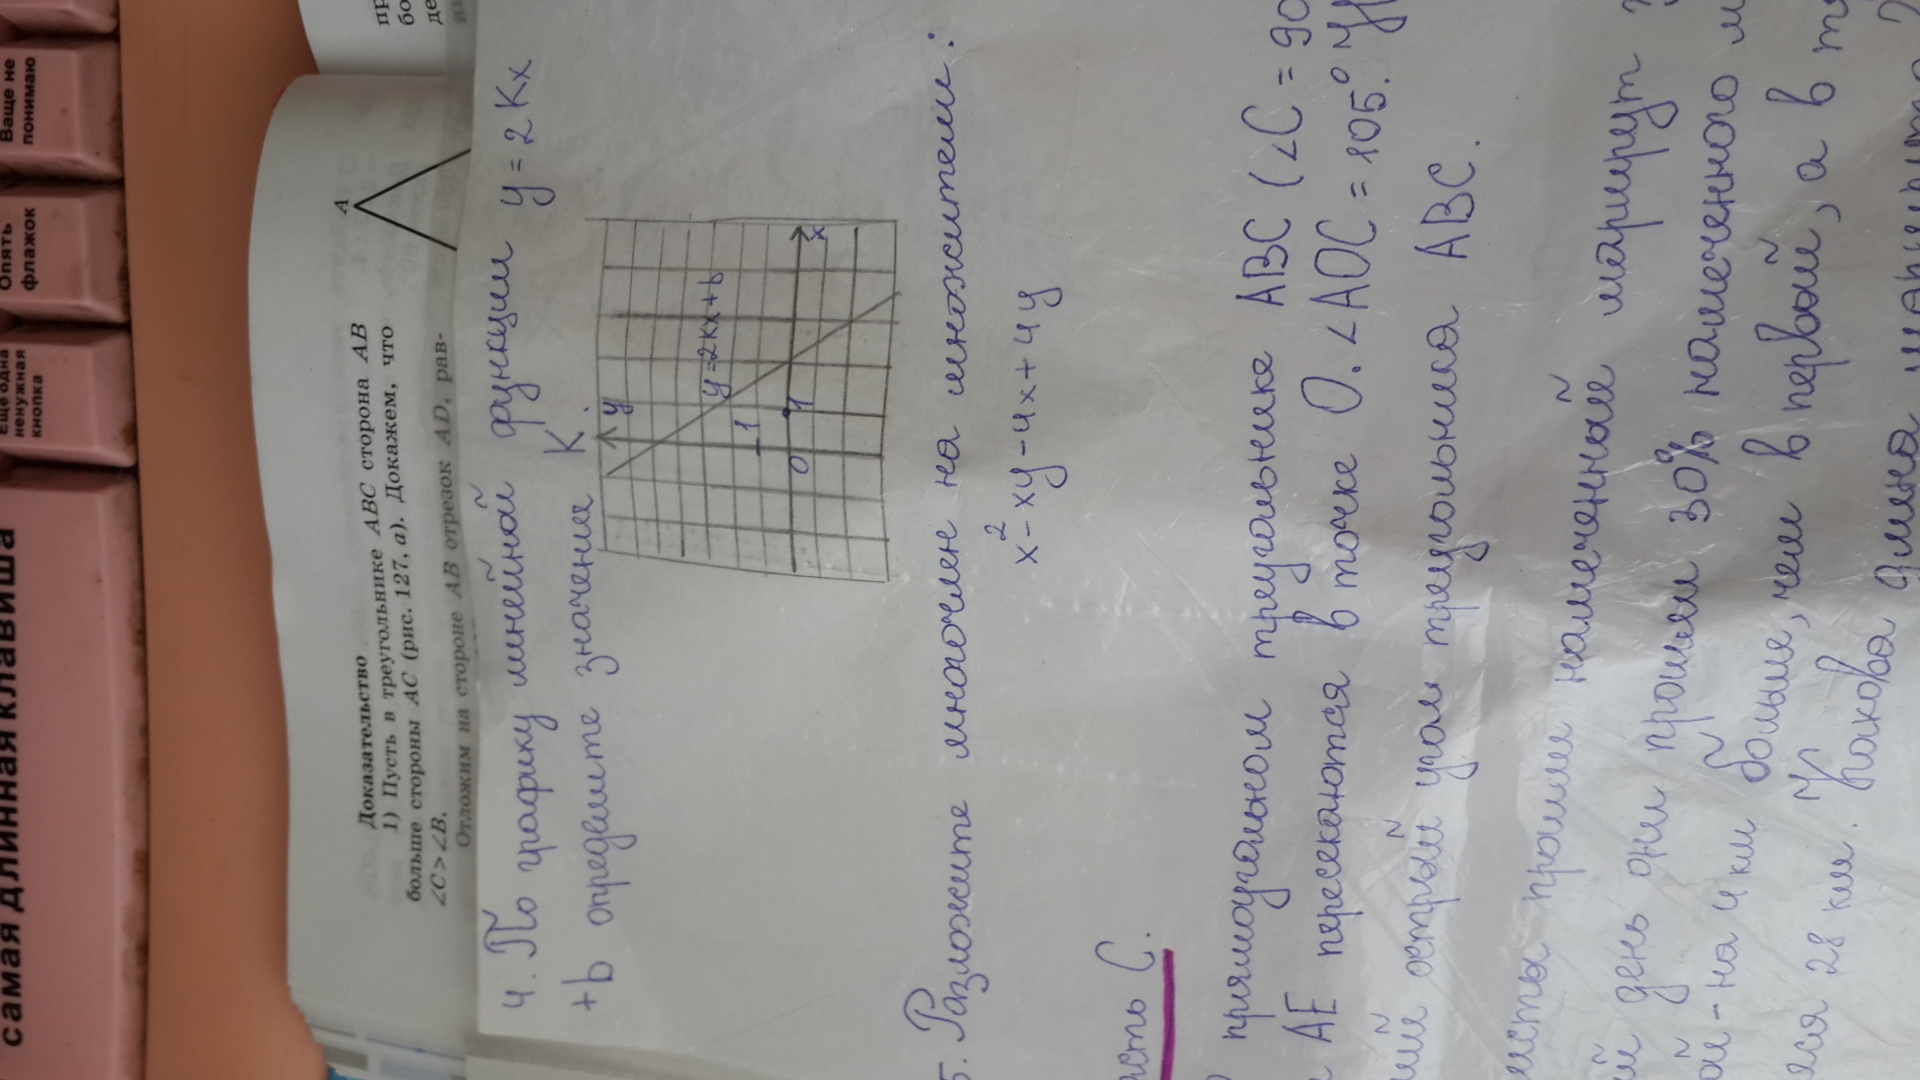 самая длинная клавиша
Еще одна
ненужная
кнопка
Опять
флажок
Ваще не
понимаю
Доказательство
1) Пусть в треугольнике ABC сторона AB
больше стороны AC (рис. 127, а). Докажем, что
∠C > ∠B.
Отложим на стороне AB отрезок AD, рав-
A
4. По графику линейной функции y = 2Kx
+b определите значение K.
y
y=2Kx+b
1
0
1
x
5. Разложите многочлен на множители:
x² - xy - 4x + 4y
C.
прямоугольном треугольнике ABC (∠C = 90
AE пересекаются в точке O. ∠AOC = 105°.
острый угол треугольника ABC.
прошли намеченный маршрут
день они прошли 30% намеченного
на 4 км больше, чем в первый, а в
28 км. Какова длина маршрута?